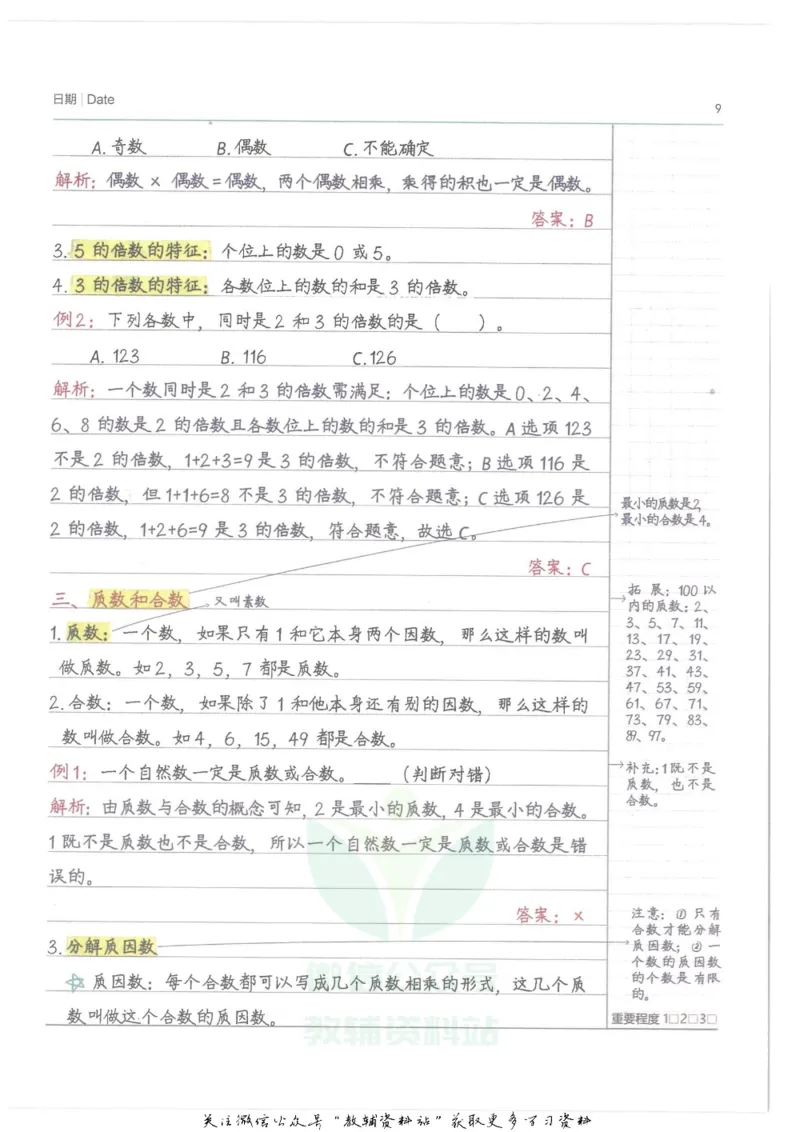 日期 | Date
9
A. 奇数 B. 偶数 C. 不能确定
解析：偶数 × 偶数=偶数，两个偶数相乘，乘得的积也一定是偶数。
答案：B
3. 5 的倍数的特征：个位上的数是 0 或 5。
4. 3 的倍数的特征：各数位上的数的和是 3 的倍数。
例2：下列各数中，同时是 2 和 3 的倍数的是（ ）。
A. 123 B. 116 C. 126
解析：一个数同时是 2 和 3 的倍数需满足：个位上的数是 0、2、4、
6、8 的数是 2 的倍数且各数位上的数的和是 3 的倍数。A 选项 123
不是 2 的倍数，1+2+3=9 是 3 的倍数，不符合题意；B 选项 116 是
2 的倍数，但 1+1+6=8 不是 3 的倍数，不符合题意；C 选项 126 是
2 的倍数，1+2+6=9 是 3 的倍数，符合题意，故选 C。
答案：C
三、质数和合数
又叫素数
1. 质数：一个数，如果只有 1 和它本身两个因数，那么这样的数叫
做质数。如 2，3，5，7 都是质数。
2. 合数：一个数，如果除了 1 和他本身还有别的因数，那么这样的
数叫做合数。如 4，6，15，49 都是合数。
例1：一个自然数一定是质数或合数。____（判断对错）
解析：由质数与合数的概念可知，2 是最小的质数，4 是最小的合数。
1 既不是质数也不是合数，所以一个自然数一定是质数或合数是错
误的。
答案：×
3. 分解质因数
☆ 质因数：每个合数都可以写成几个质数相乘的形式，这几个质
数叫做这个合数的质因数。
最小的质数是2，
最小的合数是4。
拓 展：100 以
内的质数：2、
3、5、7、11、
13、17、19、
23、29、31、
37、41、43、
47、53、59、
61、67、71、
73、79、83、
89、97。
补充：1既不是
质数，也不是
合数。
注意：① 只有
合数才能分解
质因数；② 一
个数的质因数
的个数是有限
的。
重要程度 1□2□3□
微信公众号
教辅资料站
关注微信公众号“教辅资料站”获取更多学习资料